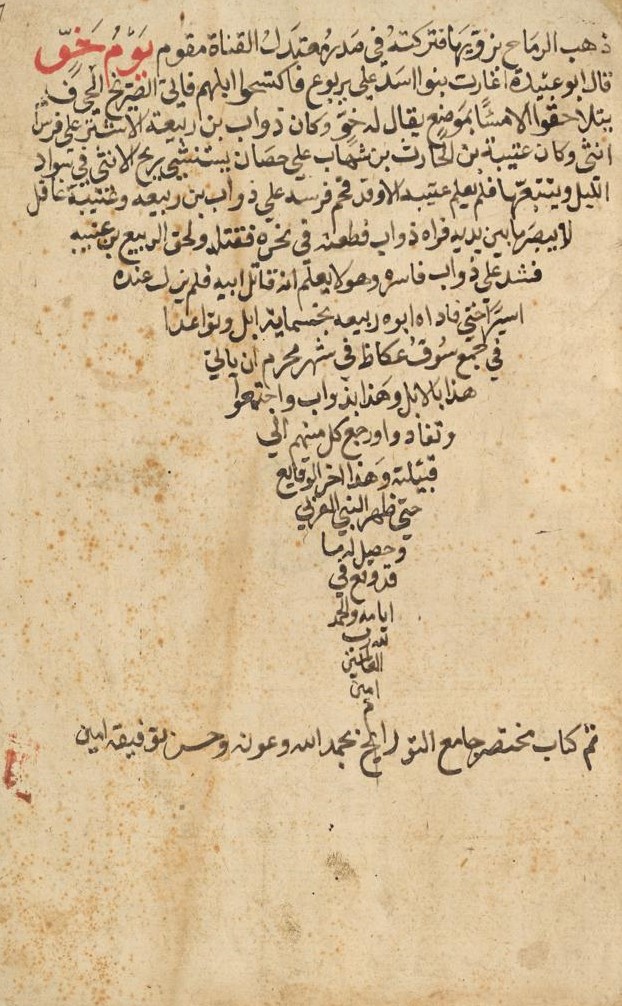 ذهب الرماح بزوجها فتركته في صدره معتدل القناة مقوم يوم خوّ
قال ابو عبيدة اغارت بنوا اسد علي يربوع فاكتسحوا ابلهم فاتي الصريخ الحي ف
يتلاحقوا الا مسًا بموضع يقال له خوّ وكان ذواب بن ربيعة الاشتر علي فرس
انثي وكان عتيبة بن الحارث بن شهاب علي حصان يستنشي ريح الانثي في سواد
الليل ويتبعها فلم يعلم عتيبه الا وقد قحم فرسه علي ذواب بن ربيعه وعتيبة غافل
لا يبصر ما بين يديه فراه ذواب فطعنه في نحره فقتله ولحق الربيع بن عتيبه
فشد علي ذواب فاسره وهو لا يعلم انه قاتل ابيه فلم يزل عنده
اسيرًا حتي فاداه ابوه ربيعه بخمسماية ابل وتواعدا
في مجمع سوق عكاظ في شهر محرم ان ياتي
هذا بالابل وهذا بذواب واجتمعوا
وتفادوا ورجع كل منهم الي
قبيلته وهذا اخر الوقايع
حتي ظهر النبي العربي
وحصل له ما
قد وقع في
ايامه والحمد
لله رب
العالمين
امين
م
تم كتاب مختصر جامع التواريخ بحمد الله وعونه وحسن توفيقه امين